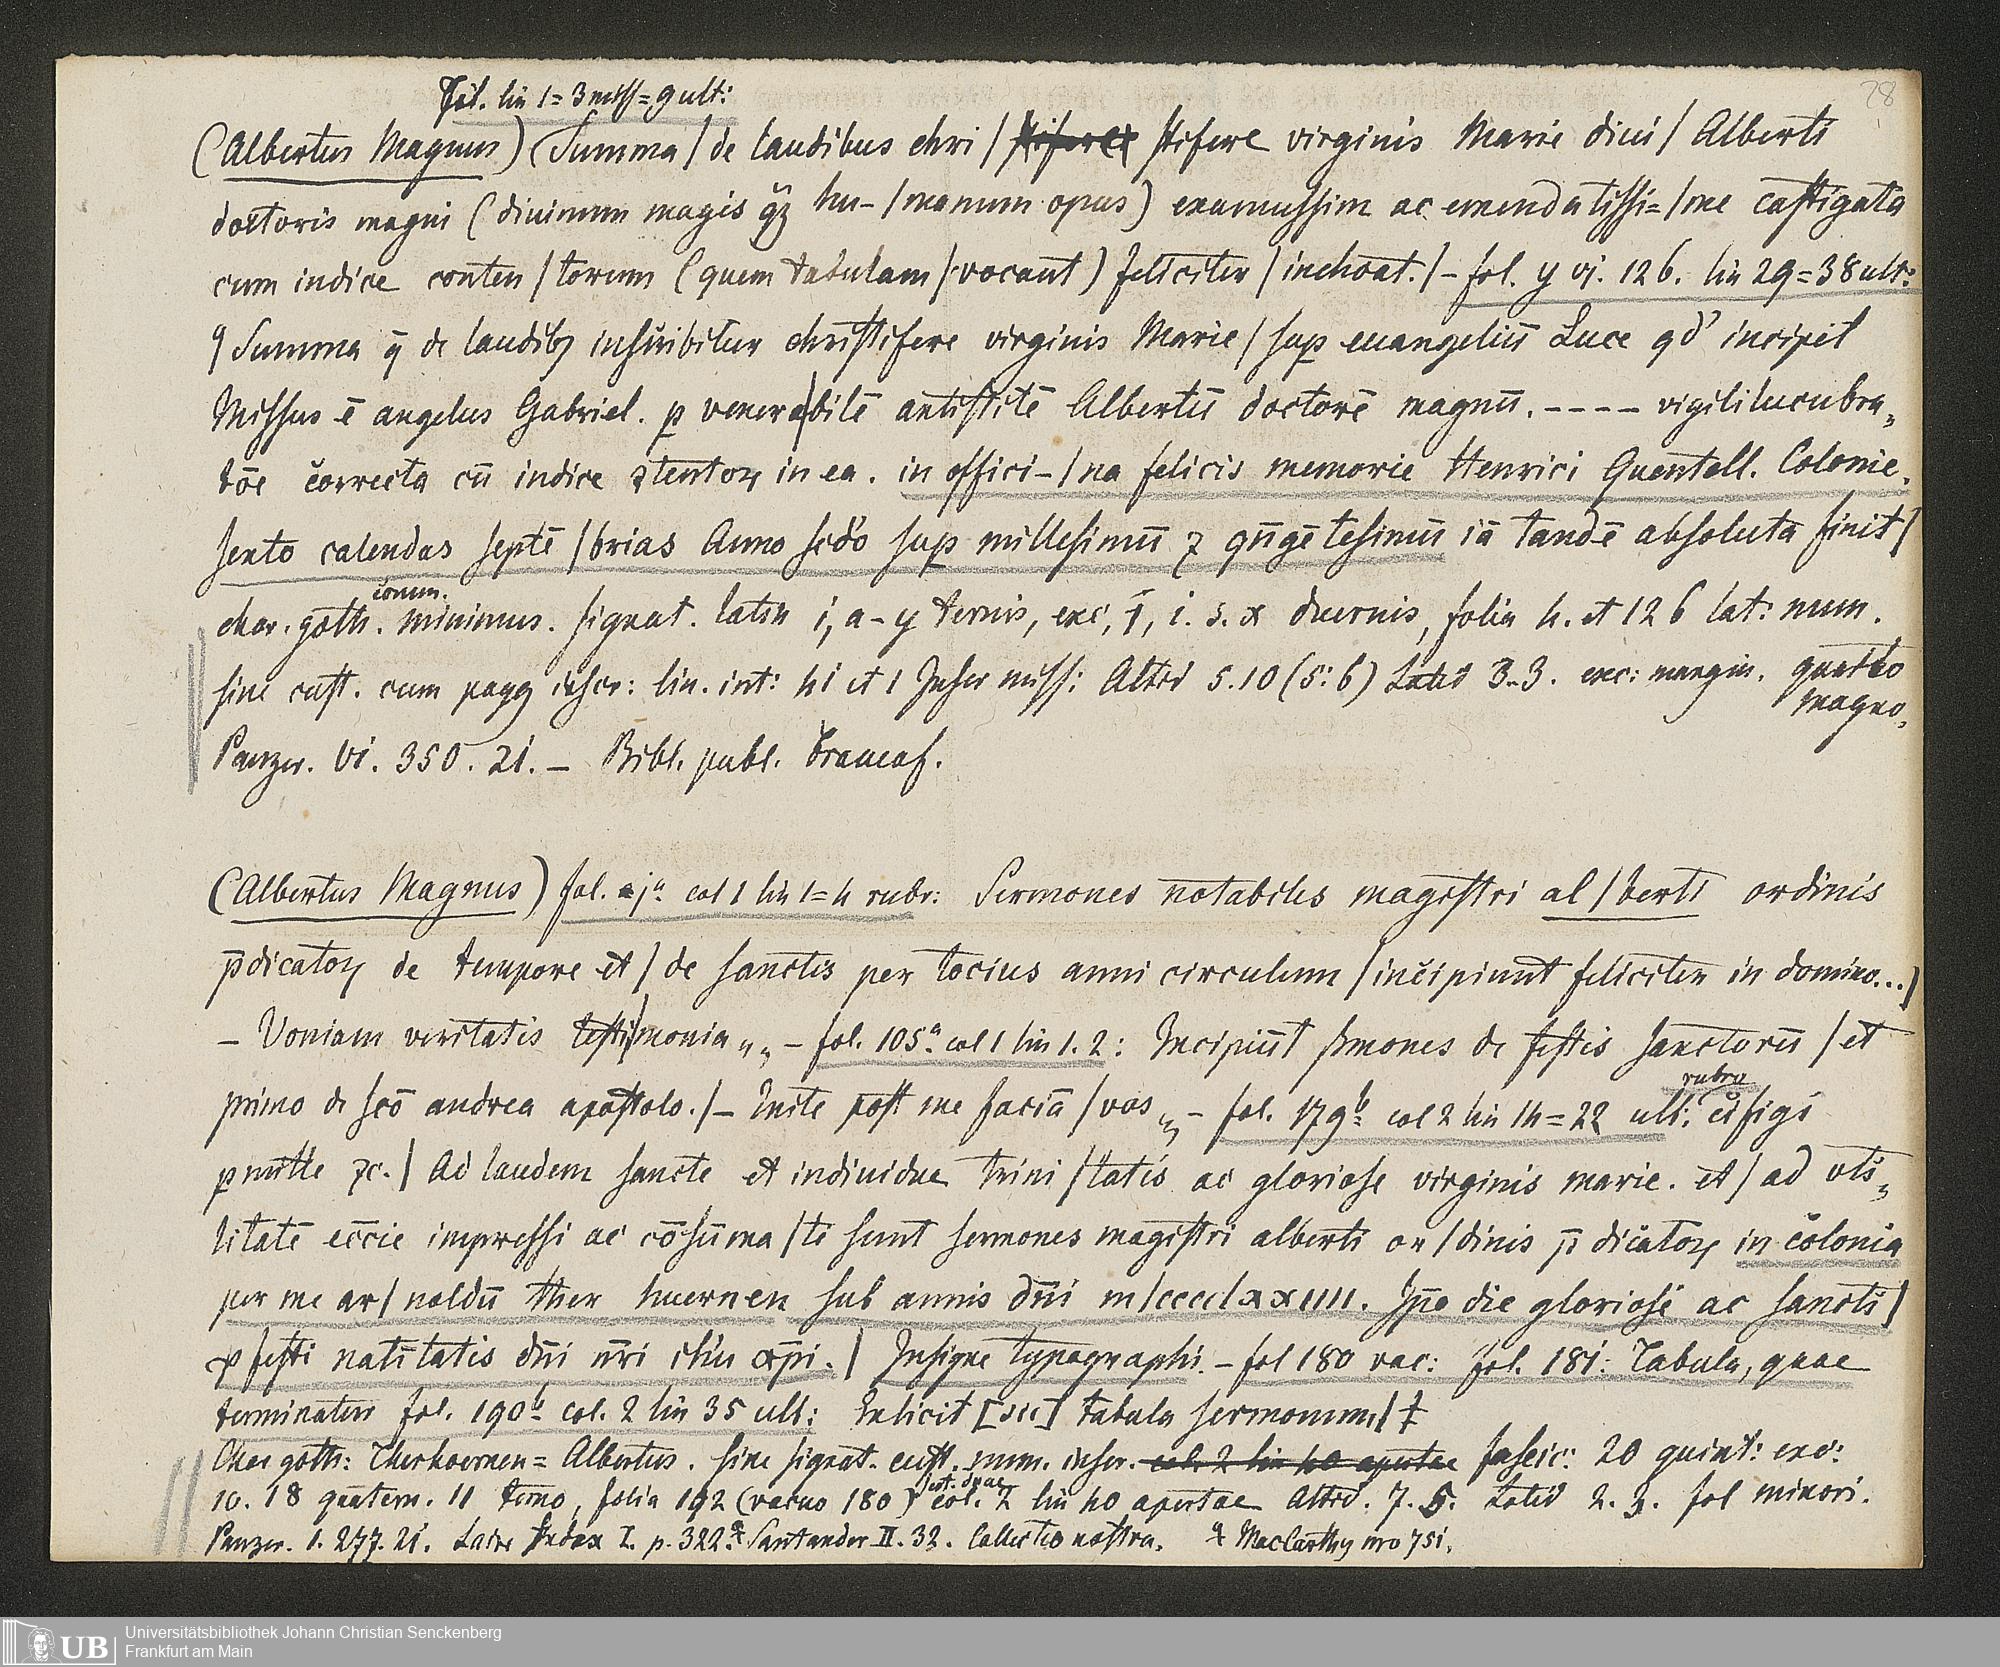 78
Tit. lin 1=3 miss=gult:
(Albertus Magnus) (Summa / de laudibus chri / stifere virginis Marie diui / Alberti
doctoris magni (diuinum magis qz hu- / manum opus) examussim ac emendatissi= / me castigata
cum indice conten / torum (quem tabulam / vocant) feliciter / inchoat. / - fol. y vj. 126. lin 29=38 ult:
Summa q̄ de laudibȝ inscribitur christifere virginis Marie / sup euangeliū Luce qd' incipit
Missus ē angelus Gabriel. p venera / bilē antistitē Albertū doctorē magnū. ---- vigili lucubra„
tōe correcta cū indice ɔtentoꝝ in ea. in offici- / na felicis memorie Henrici Quentell. Colonie.
sexto calendas septē / brias Anno scd̄o sup millesimū ⁊ qūgētesimū iā tandē absoluta finit /
char. goth. comm. minimus. signat. latin i, a-y ternis, exc, i. s. x duernis, folia 4. et 126 lat: num.
sine cust. cum pagg inscr: lin. int: 41 et 1 Inscr miss: Altid 5.10 (5:6) Latid 3.3. exc: margin. quarto
magno.
Panzer. VI. 350. 21. — Bibl. publ. Francof.
(Albertus Magnus) fol. jª col 1 lin 1=4 rubr: Sermones notabiles magistri al / berti ordinis
p̄dicatoꝝ de tempore et / de sanctis per tocius anni circulum / incipiunt feliciter in domino... /
— Uoniam veritatis testi / monia „ „ — fol. 105ª col 1 lin 1. 2: Incipiūt smones de festis sanctorū / et
primo de scō andrea apostolo. / — Enite post me faciā / vos „ — fol. 179ᵇ col 2 lin 14=22 ult: rubro cū figi
pmitte ⁊c. / Ad laudem sancte et indiuidue trini / tatis ac gloriose virginis marie. et / ad vti„
litatē eccīe impressi ac cōsūma / ti sunt sermones magistri alberti or / dinis p̄dicatoꝝ in colonia
per me ar / noldū ther huernen sub annis dn̄i m / cccclxxiiii. Ip̄o die gloriosi ac sancti /
festi natiītatis dn̄i nr̄i ihū xp̄i. / Insigne typographi. — fol 180 vac: fol. 181: Tabula, quae
terminatur fol. 190ᵇ col. 2 lin 35 ult: Exlicit [sic] tabula sermonum / ‡
Char goth: Therhoernen = Albertus. sine signat. cust. num. inscr. col. 2 lin 40 apertae fascic: 20 quint: exc:
10. 18 quatern. 11 terno, folia 192 (vacuo 180) int. duae col. 2 lin 40 apertae Altid. 7. 5. Latid 2. 3. fol minori.
Panzer. 1. 277. 21. Laire Index I. p. 322. Santander II. 32. Collectio nostra. MacCarthy nro 751.
UB Universitätsbibliothek Johann Christian Senckenberg
Frankfurt am Main